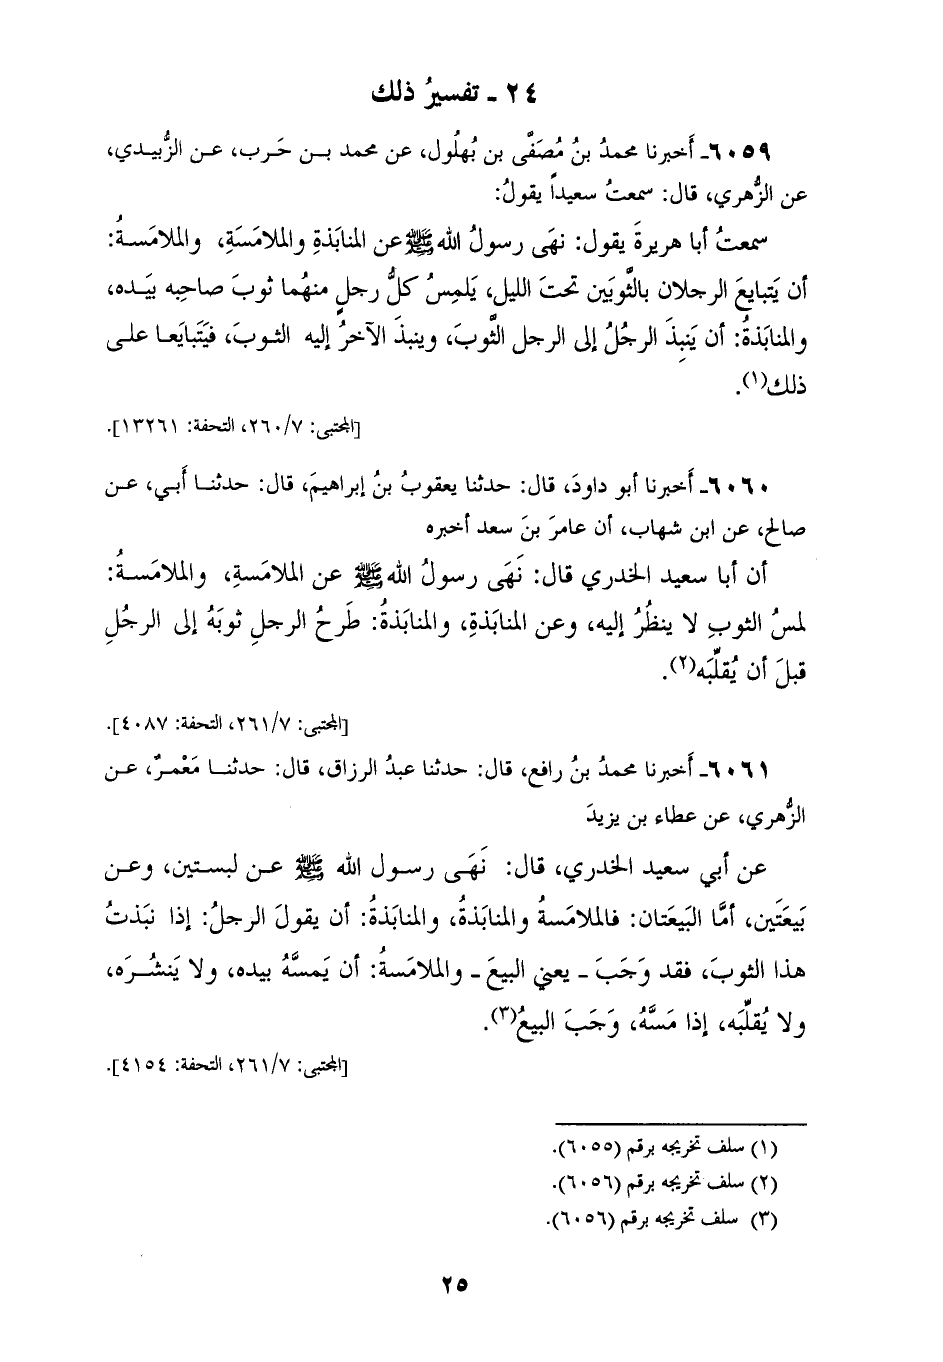 ٢٤ ـ تفسيرُ ذلك
٦٠٥٩ـ أَخبرنا محمدُ بنُ مُصَفَّى بن بُهلُول، عن محمد بـن حَرب، عـن الزُّبيـدي،
عن الزُّهري، قال: سمعتُ سعيداً يقولُ:
سمعتُ أبا هريرةَ يقول: نهَى رسولُ الله ﷺ عن المنابَذةِ والملامَسَةِ، والملامَسةُ:
أن يَتبايعَ الرجلان بالثَّوبَين تحتَ الليل، يَلمِسُ كلُّ رجلٍ منهُما ثوبَ صاحبِه بيَـده،
والمنابَذةُ: أن يَنبِذَ الرجُلُ إلى الرجل الثَّوبَ، وينبذَ الآخرُ إليه الثـوبَ، فيَتَبايَعـا على
ذلك(١).
[المجتبى: ٢٦٠/٧، التحفة: ١٣٢٦١].
٦٠٦٠ـ أَخبرنا أبو داودَ، قال: حدثنا يعقوبُ بنُ إبراهيمَ، قال: حدثنـا أَبي، عـن
صالح، عن ابن شهاب، أن عامرَ بنَ سعد أخبره
أن أبا سعيد الخدري قال: نَهَى رسولُ الله ﷺ عن الملامَسةِ، والملامَسـةُ:
لمسُ الثوبِ لا ينظُرُ إليه، وعن المنابَذةِ، والمنابَذةُ: طَرحُ الرجلِ ثوبَهُ إلى الرجُلِ
قبلَ أن يُقلِّبَه(٢).
[المجتبى: ٢٦١/٧، التحفة: ٤٠٨٧].
٦٠٦١ـ أَخبرنا محمدُ بنُ رافع، قال: حدثنا عبدُ الرزاق، قال: حدثنـا مَعْمـرٌ، عـن
الزُّهري، عن عطاء بن يزيدَ
عن أبي سعيد الخدري، قال: نَهَـى رسـول الله ﷺ عـن لبسـتين، وعـن
بَيعَتَين، أمَّا البَيعَتان: فالملامَسةُ والمنابَذةُ، والمنابَذةُ: أن يقولَ الرجلُ: إذا نَبَذتُ
هذا الثوبَ، فقد وَجَبَ ـ يعني البيعَ ـ والملامَسةُ: أن يَمسَّهُ بيده، ولا يَنشُـرَه،
ولا يُقلِّبَه، إذا مَسَّهُ، وَجَبَ البيعُ(٣).
[المجتبى: ٢٦١/٧، التحفة: ٤١٥٤].
(١) سلف تخريجه برقم (٦٠٥٥).
(٢) سلف تخريجه برقم (٦٠٥٦).
(٣) سلف تخريجه برقم (٦٠٥٦).
٢٥